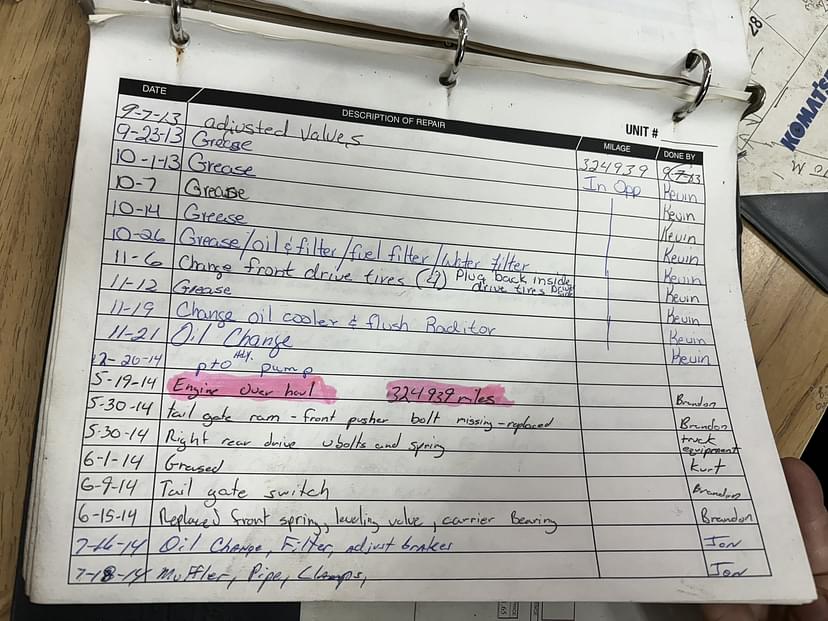 28
KOMATSU
UNIT #
DATE DESCRIPTION OF REPAIR MILAGE DONE BY
9-7-13 adjusted valves 324939 9-7-13
9-23-13 Grease In Opp Kevin
10-1-13 Grease Kevin
10-7 Grease Kevin
10-14 Grease Kevin
10-26 Grease/oil & filter/fuel filter/water filter Kevin
11-6 Change front drive tires (4) Plug back inside drive tires Kevin
11-12 Grease Kevin
11-19 Change oil cooler & flush Raditor Kevin
11-21 Oil Change Kevin
12-20-14 pto Adj. pump
5-19-14 Engine Over haul 324939 miles Brandon
5-30-14 tail gate ram - front pusher bolt missing - replaced Brandon
5-30-14 Right rear drive ubolts and spring truck equipment
6-1-14 Greased Kurt
6-9-14 Tail gate switch Brandon
6-15-14 Replaced front spring, leveling valve, carrier Bearing Brandon
7-16-14 Oil Change, Filter, adjust brakes Jon
7-18-14 Muffler, Pipe, Clamps, Jon